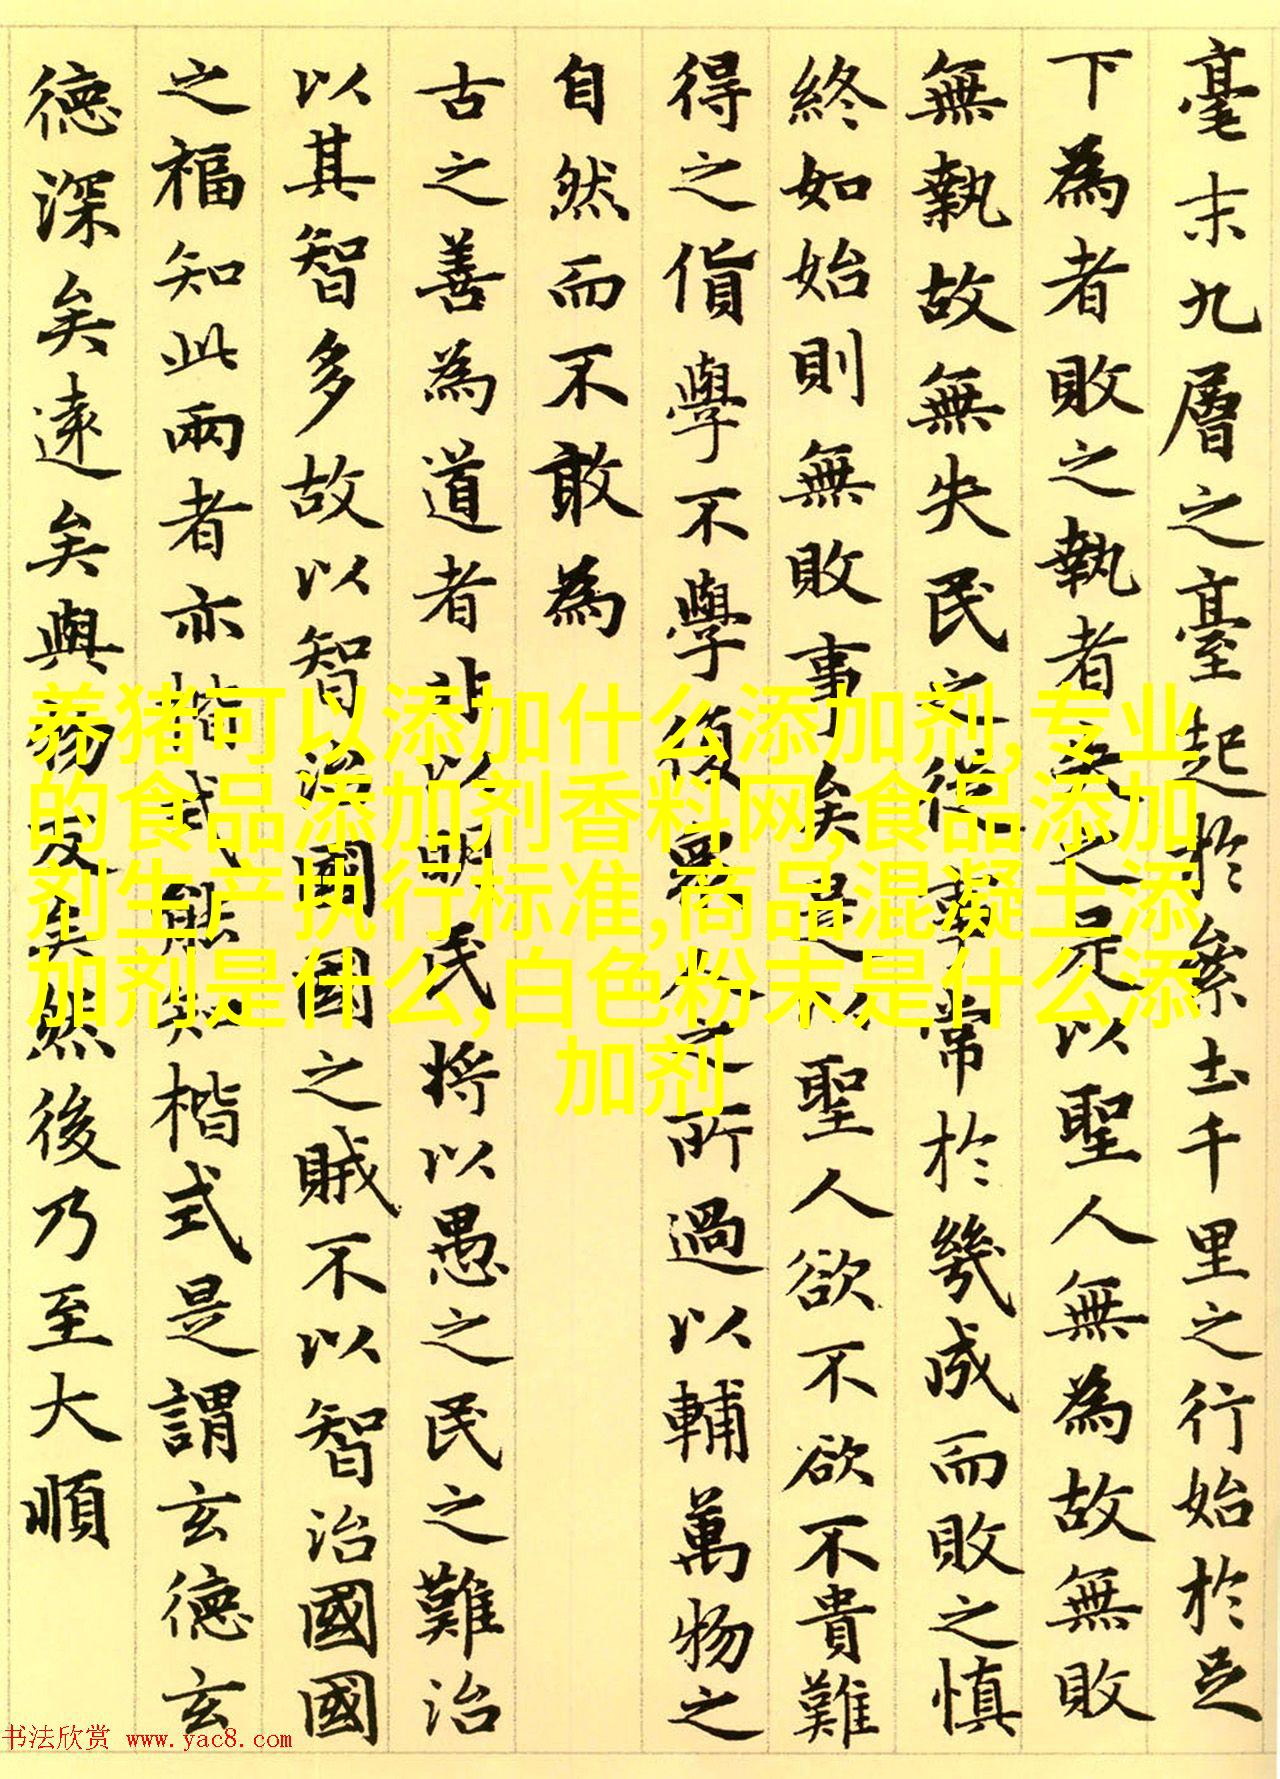 毫末九層之臺起於絫土千里之行始於足
下為者敗之執者失之是以聖人無為故無敗
無執故無失民之從事常於幾成而敗之慎
終如始則無敗事矣是以聖人欲不欲不貴難
得之貨學不學復眾人之所過以輔萬物之
自然而不敢為
古之善為道者非以明民將以愚之民之難治
以其智多故以智治國國之賊不以智治國國
之福知此兩者亦楷式能知楷式是謂玄德玄
德深矣遠矣與物反矣然後乃至大順
养猪可以添加什么添加剂,专业
的食品添加剂香料网,食品添加
剂生产执行标准,商品混凝土添
加剂是什么,白色粉末是什么添
加剂
书法欣赏 www.yac8.com